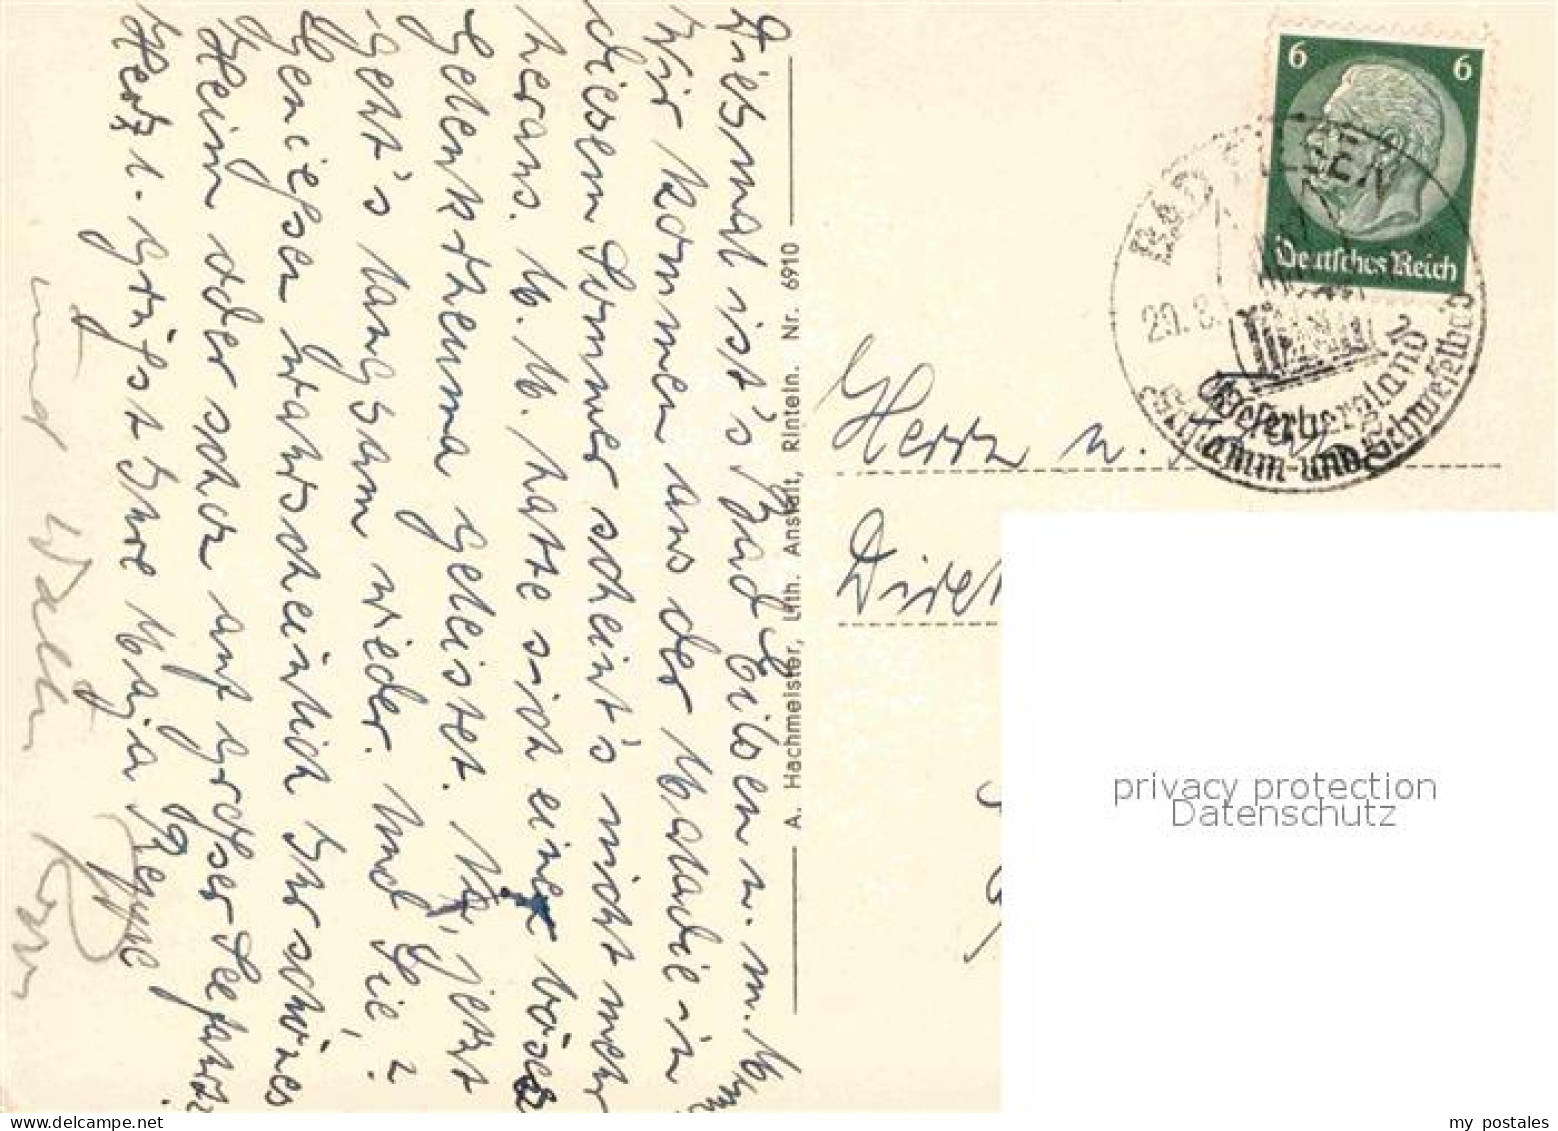 Diesmal ist's Bad Eilsen u. m. M
wir kommen aus der Maladie in
diesem Sommer scheint's nicht mehr
heraus. M. M. hatte sich einen bösen
Gelenkrheuma geleistet. Na, jetzt
geht's langsam wieder. Und Sie?
Geniessen wahrscheinlich Ihr schönes
Heim oder schon auf großer Seefahrt?
Herzl. grüßst Ihre Maja
und
A. Hachmeister, Lith. Anstalt, Rinteln. Nr. 6910
6 6
Deutsches Reich
BAD EILSEN
20. 8.
Weserbergland
Schlamm- und Schwefelbad
Herrn u.
Direkt
privacy protection
Datenschutz
my postales